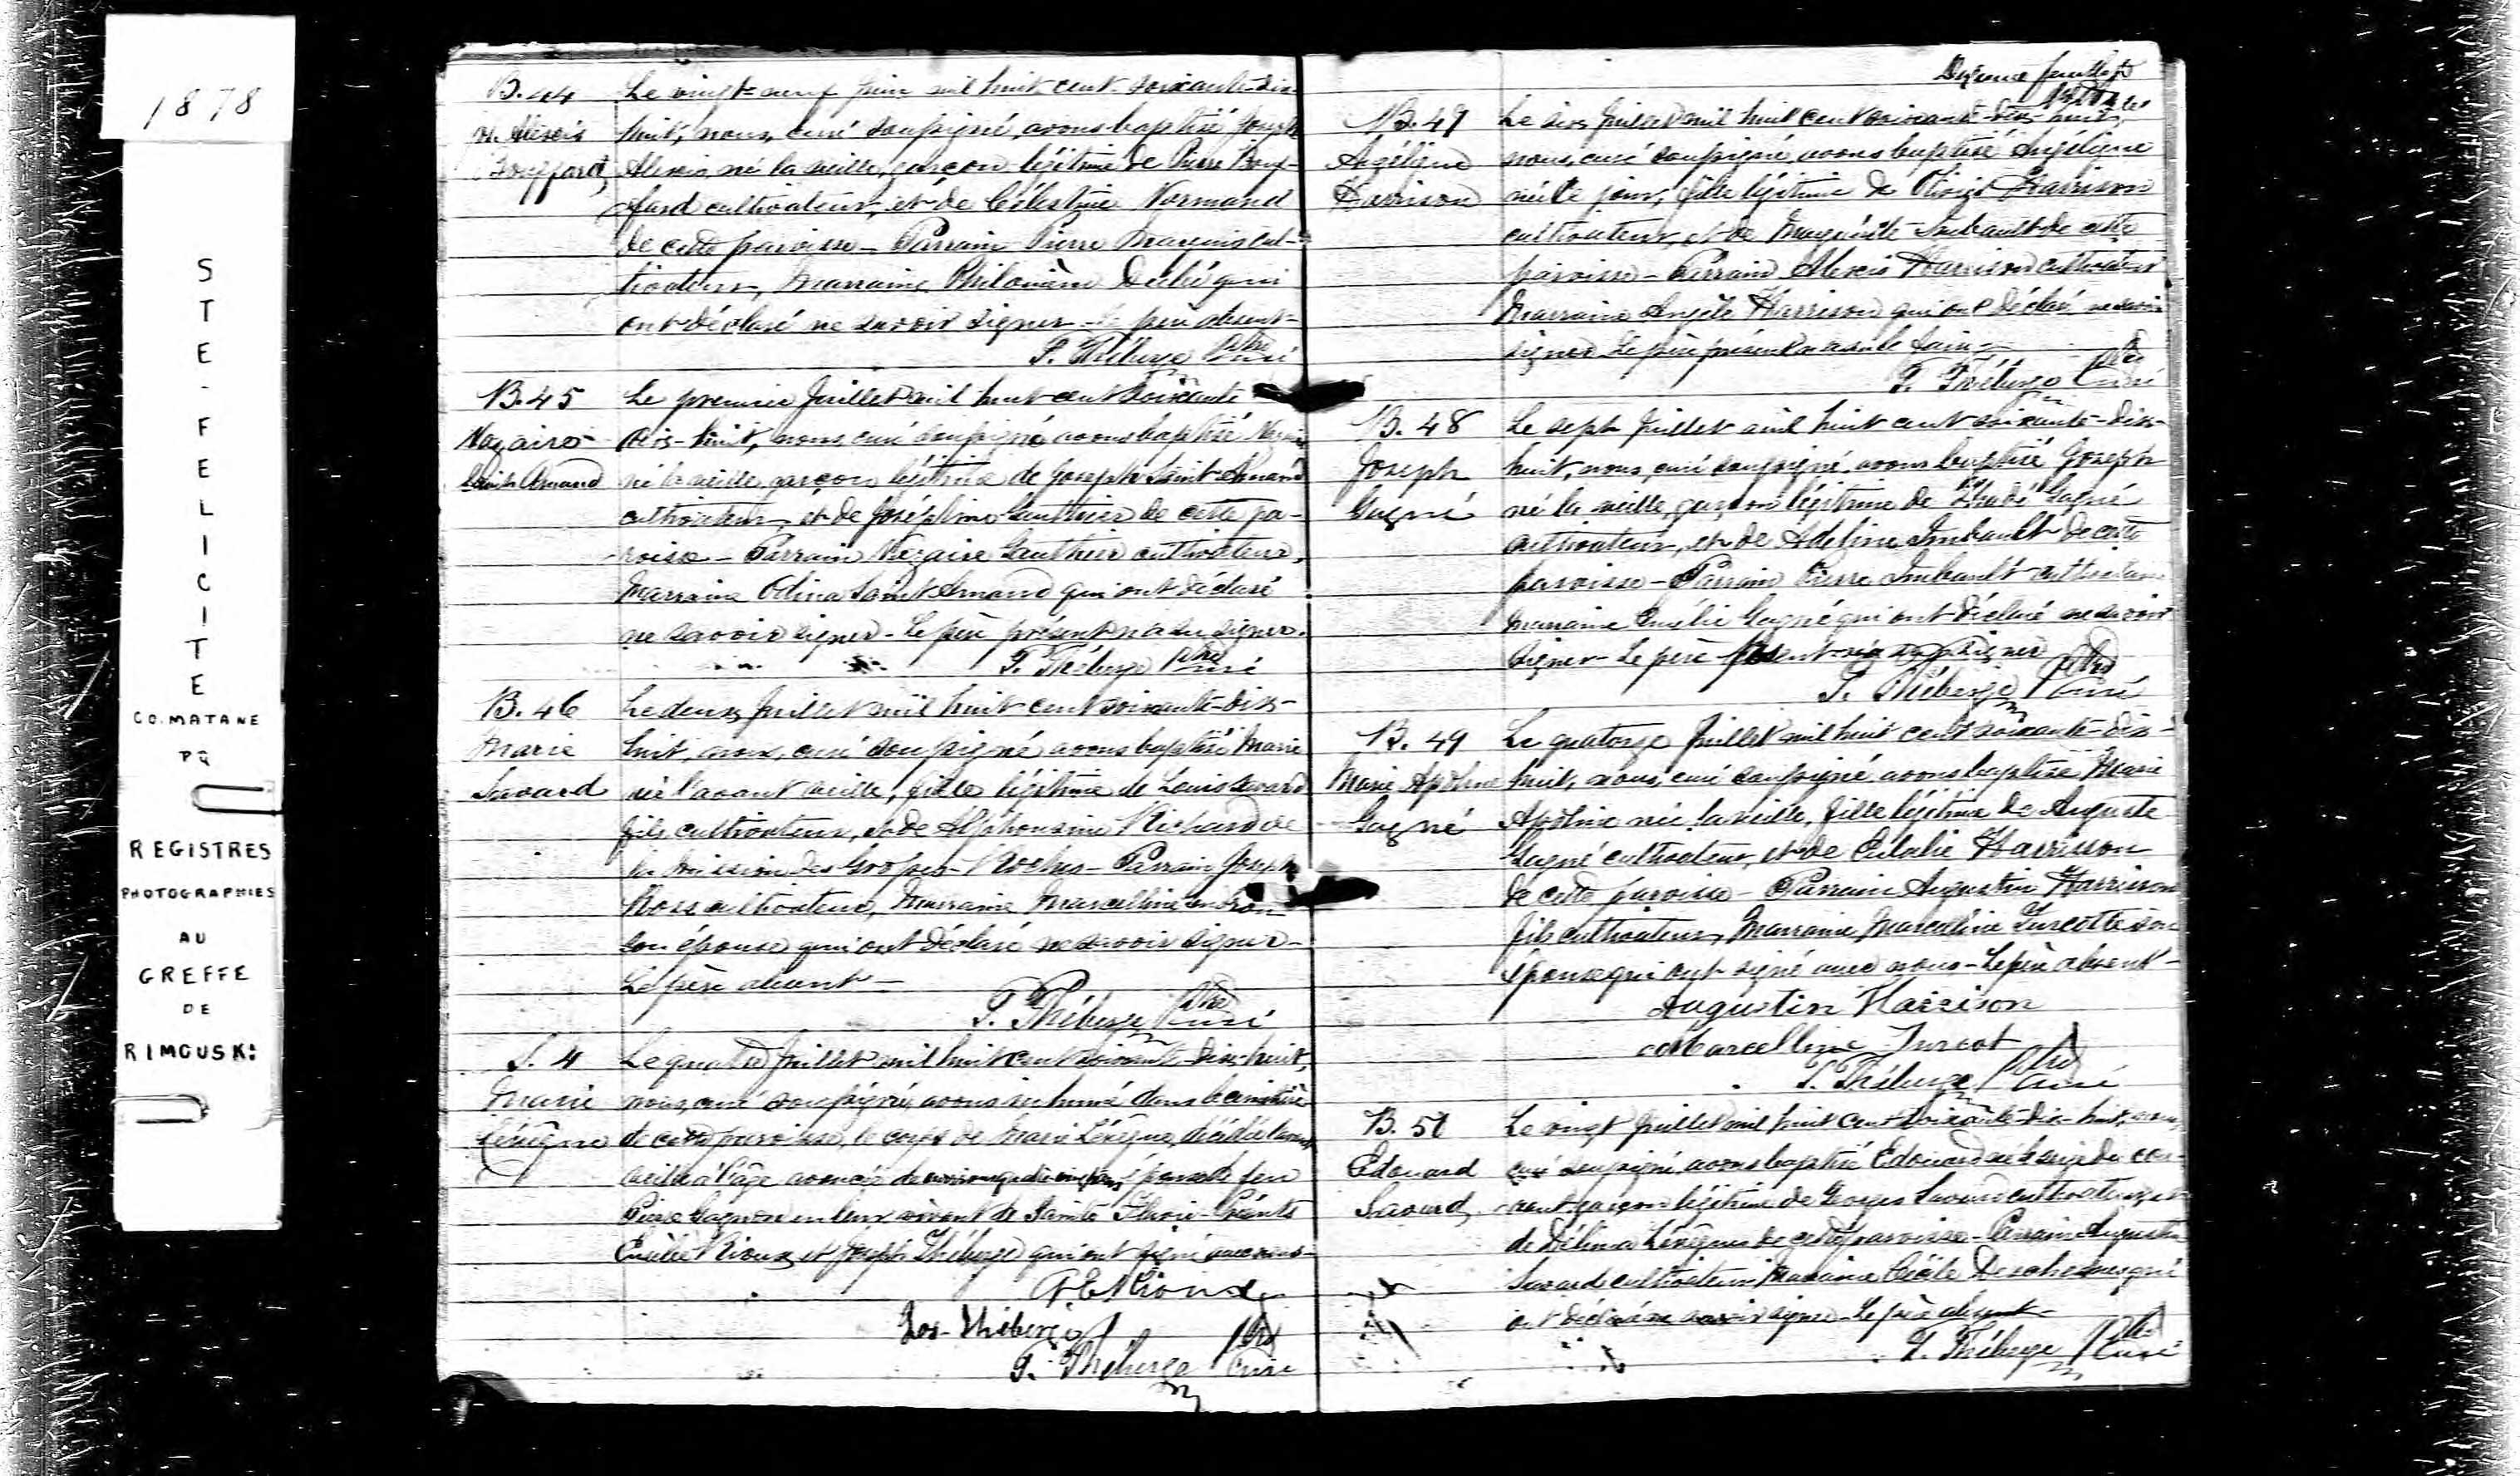 1878
STE-FELICITE
CO. MATANE
PQ
REGISTRES
PHOTOGRAPHIES
AU
GREFFE
DE
RIMOUSKI
B. 44
Le vingt-neuf Juin mil huit cent soixante-dix-
Js. Alexis
huit, nous, curé soussigné, avons baptisé Joseph
Bouffard
Alexis né la veille, garçon légitime de Pierre Bouf-
fard cultivateur, et de Célestine Normand
de cette paroisse - Parrain Pierre Marquis cul-
tivateur, Marraine Philomène qui
ont déclaré ne savoir signer - le père absent -
P. Théberge Ptre Curé
B. 45
Le premier Juillet mil huit cent soixante
Nazaire
dix-huit, nous curé soussigné avons baptisé Nazaire
Saint Amand
né la veille, garçon légitime de Joseph Saint Amand
cultivateur, et de Joséphine Gauthier de cette pa-
roisse - Parrain Nazaire Gauthier cultivateur,
Marraine Odina Saint Amand qui ont déclaré
ne savoir signer - Le père présent n'a su signer.
P. Théberge Ptre Curé
B. 46
Le deux Juillet mil huit cent soixante-dix-
Marie
huit, nous, curé soussigné avons baptisé Marie
Savard
née l'avant veille, fille légitime de Louis Savard
fils, cultivateur, et de Alphonsine Richard de
la mission des Grosses-Roches - Parrain Joseph
Ross cultivateur, Marraine Marcelline Gendron
son épouse qui ont déclaré ne savoir signer -
Le père absent -
P. Théberge Ptre Curé
S. 4
Le quatre Juillet mil huit cent soixante-dix-huit,
Marie
nous, curé soussigné, avons inhumé dans le cimetière
Lévêque
de cette paroisse, le corps de Marie Lévêque, décédée l'avant
veille à l'âge avancé de quatre-vingt ans épouse de feu
Pierre Gagnon en leur vivant de Sainte Flavie - Présents
Rioux et Joseph Théberge qui ont signé avec nous -
Rioux
Jos. Théberge
P. Théberge Ptre Curé
feuillet
B. 47
Le six Juillet mil huit cent soixante-dix-huit,
Angélique
nous, curé soussigné, avons baptisé Angélique
Harrison
née ce jour, fille légitime de Olivier Harrison
cultivateur, et de Marguerite Imbault de cette
paroisse - Parrain Alexis Harrison cultivateur
Marraine Angèle Harrison qui ont déclaré ne savoir
signer Le père présent n'a su le faire -
P. Théberge Ptre Curé
B. 48
Le sept Juillet mil huit cent soixante-dix-
Joseph
huit, nous, curé soussigné, avons baptisé Joseph
Gagné
né la veille, garçon légitime de Gagné
cultivateur, et de Adeline Imbault de cette
paroisse - Parrain Pierre Imbault cultivateur
Marraine Emélie Gagné qui ont déclaré ne savoir
signer - Le père présent n'a su signer
P. Théberge Ptre Curé
B. 49
Le quatorze Juillet mil huit cent soixante-dix-
Marie Apolline
huit, nous, curé soussigné avons baptisé Marie
Gagné
Apolline née la veille, fille légitime de Auguste
Gagné cultivateur, et de Eulalie Harrisson
de cette paroisse - Parrain Augustin Harrisson
fils cultivateur, Marraine Marcelline Turcotte son
épouse qui ont signé avec nous - Le père absent -
Augustin Harrison
Marcelline Turcot
P. Théberge Ptre Curé
B. 50
Le vingt Juillet mil huit cent soixante-dix-huit, nous,
Edouard
curé soussigné, avons baptisé Edouard né le seize du cou-
Savard
rant, garçon légitime de Georges Savard cultivateur, et
de Délima Lévêque de cette paroisse - Parrain Augustin
Savard cultivateur Marraine Cécile Deschenes qui
ont déclaré ne savoir signer - Le père absent -
P. Théberge Ptre Curé